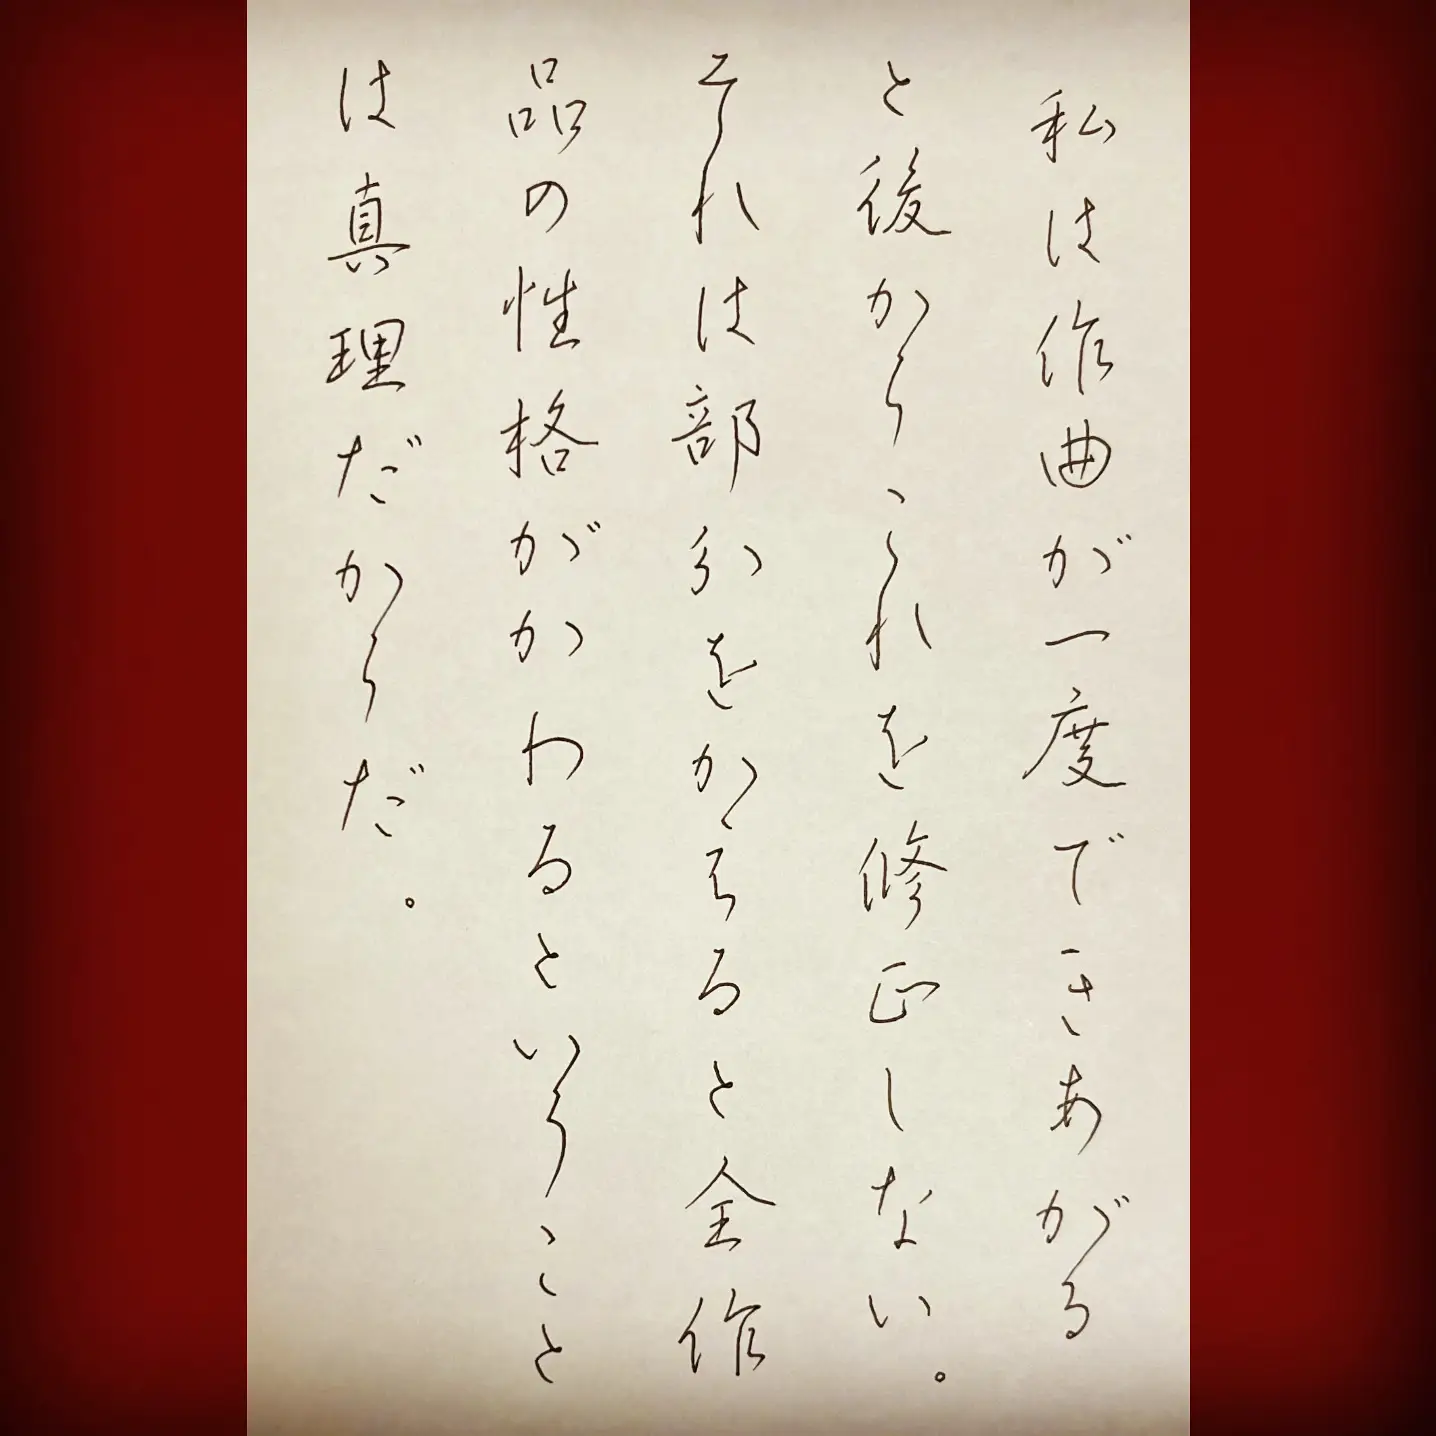 私は作曲が一度できあがる
と後からこれを修正しない。
それは部分をかえると全作
品の性格がかわるということ
は真理だからだ。